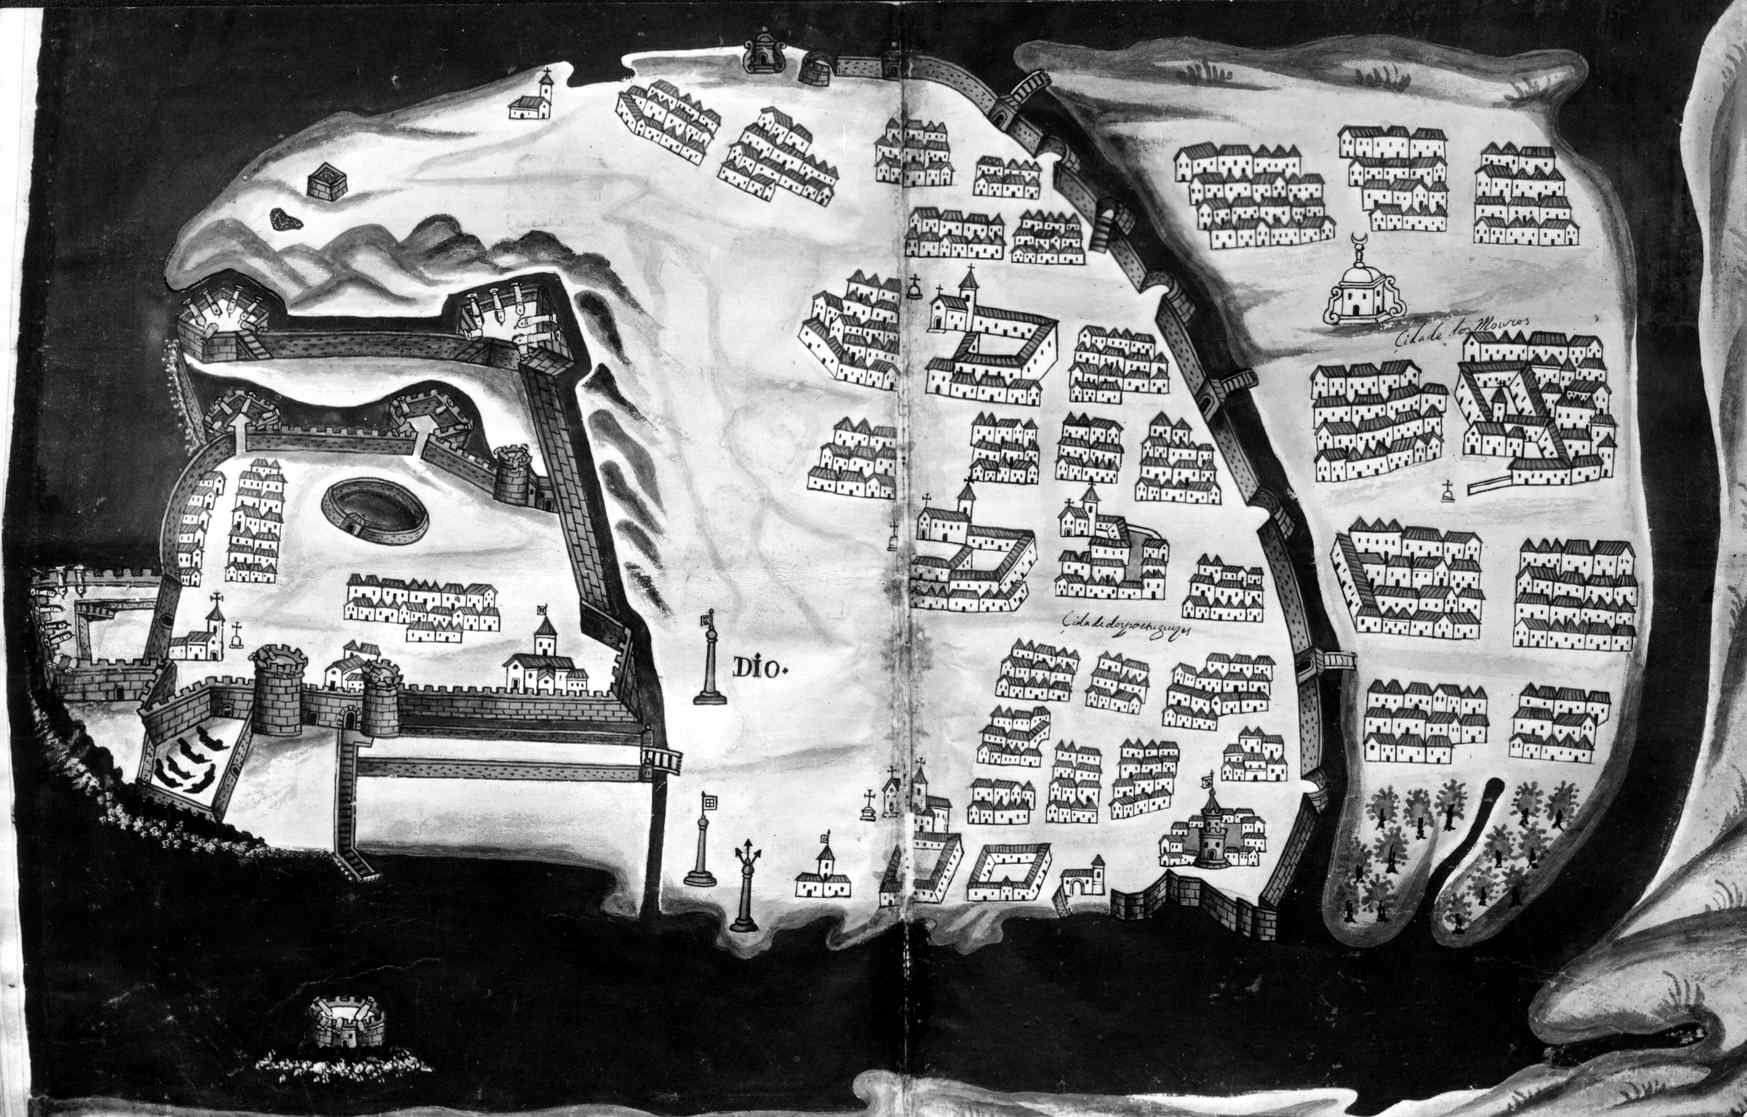 Cidade dos Mouros
DIO.
Cidade dos portuguezes